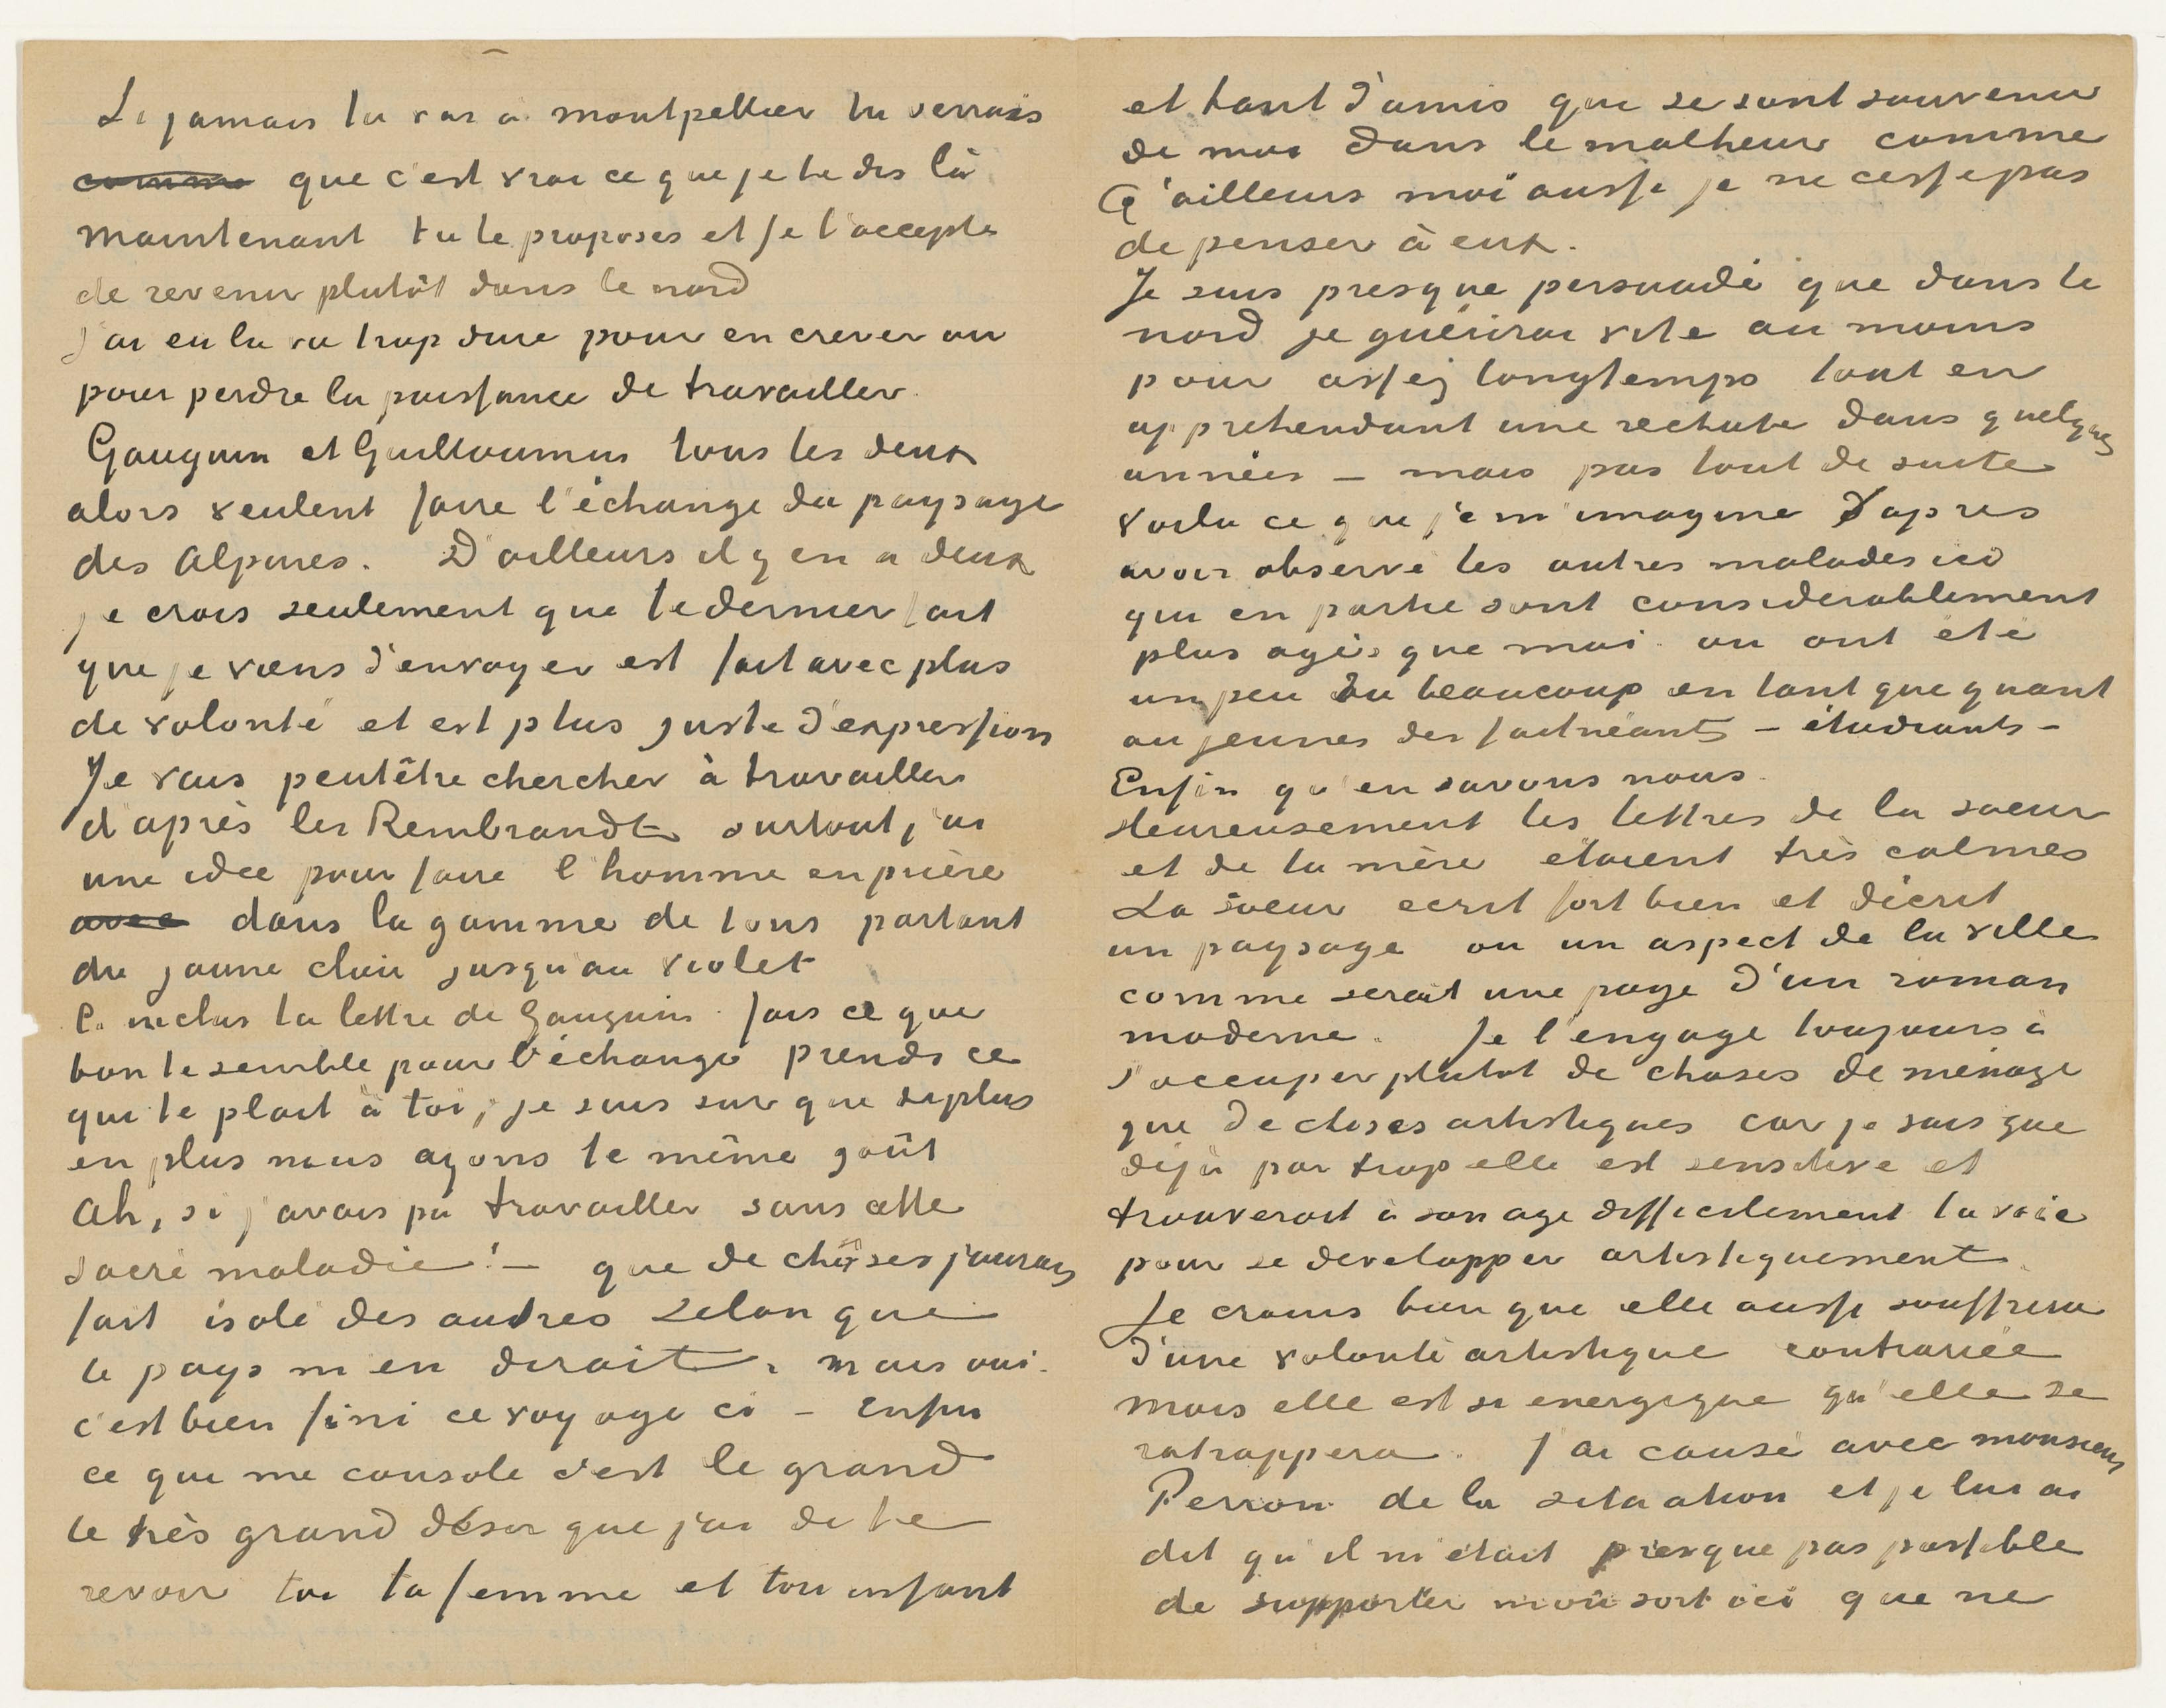 Si jamais tu vas à montpellier tu verrais
comme que c'est vrai ce que je te dis là
maintenant tu le proposes et je l'accepte
de revenir plutôt dans le nord
j'ai eu la vie trop dure pour en crever ou
pour perdre la puissance de travailler.
Gauguin et Guillaumin tous les deux
alors veulent faire l'échange du paysage
des Alpines. D'ailleurs il y en a deux
je crois seulement que le dernier fait
que je viens d'envoyer est fait avec plus
de volonté et est plus juste d'expression
Je vais peutêtre chercher à travailler
d'après les Rembrandt surtout j'ai
une idee pour faire l'homme en prière
avec dans la gamme de tons partant
du jaune clair jusqu'au violet
Ci inclus la lettre de Gauguin. fais ce que
bon te semble pour l'échange prends ce
qui te plait à toi, je suis sur que de plus
en plus nous ayons le même goût
Ah, si j'avais pu travailler sans cette
sacré maladie! – que de choses j'aurais
fait isolé des autres selon que
le pays m'en dirait. mais oui.
c'est bien fini ce voyage ci – Enfin
ce qui me console c'est le grand
le très grand désir que j'ai de te
revoir toi ta femme et ton enfant
et tant d'amis qui se sont souvenu
de moi dans le malheur comme
d'ailleurs moi aussi je ne cesse pas
de penser à eux.
Je suis presque persuadé que dans le
nord je guérirai vite au moins
pour assez longtemps tout en
apprehendant une rechute dans quelques
années – mais pas tout de suite
Voila ce que je m'imagine d'apres
avoir observé les autres malades ici
qui en partie sont considerablement
plus agés que moi ou ont été
un peu ou beaucoup en tant que quant
au jeunes des faitnéants – étudiants –
Enfin qu'en savons nous.
Heureusement les lettres de la soeur
et de la mère etaient très calmes
La soeur ecrit fort bien et décrit
un paysage ou un aspect de la ville
comme serait une page d'un roman
moderne. Je l'engage toujours à
s'occuper plutot de choses de ménage
que de choses artistiques car je sais que
déjà par trop elle est sensitive et
trouverait à son age difficilement la voie
pour se developper artistiquement.
Je crains bien que elle aussi souffrira
d'une volonté artistique contrariée
mais elle est si energique qu'elle se
ratrappera. J'ai causé avec monsieur
Peyron de la situation et je lui ai
dit qu'il m'était presque pas possible
de supporter mon sort ici que ne